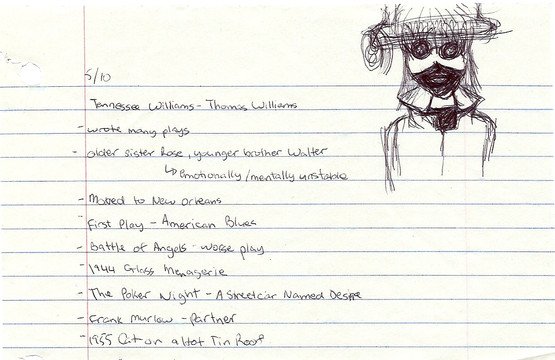 5/10
Tennessee Williams - Thomas Williams
- wrote many plays
- older sister Rose, younger brother Walter
↳ Emotionally/mentally unstable
- Moved to New Orleans
- First Play - American Blues
- Battle of Angels - worse play
- 1944 Glass Menagerie
- The Poker Night - A Streetcar Named Desire
- Frank Murlow - Partner
- 1955 Cat on a Hot Tin Roof